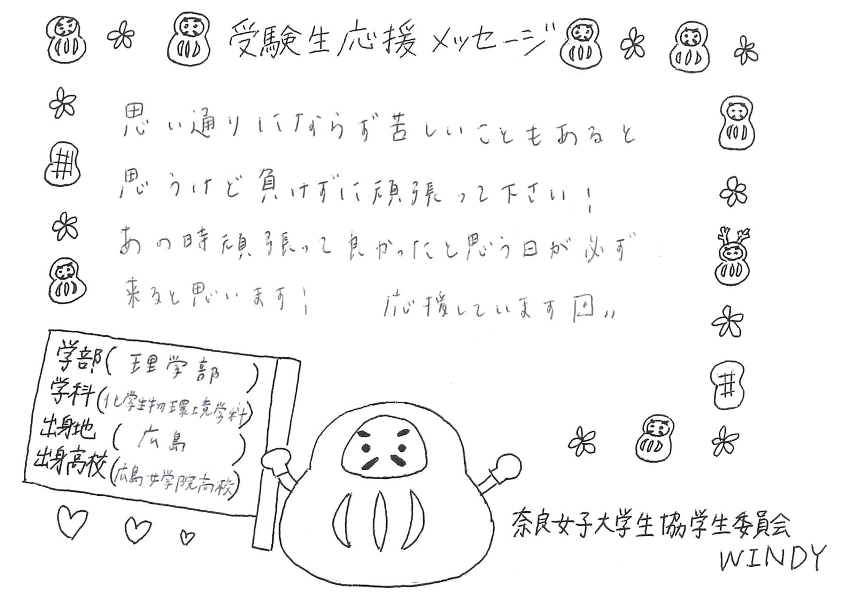 受験生応援メッセージ
思い通りにならず苦しいこともあると
思うけど負けずに頑張って下さい！
あの時頑張って良かったと思う日が必ず
来ると思います！ 応援しています
学部(理学部)
学科(化学生物環境学科)
出身地(広島)
出身高校(広島女学院高校)
奈良女子大学生協学生委員会
WINDY